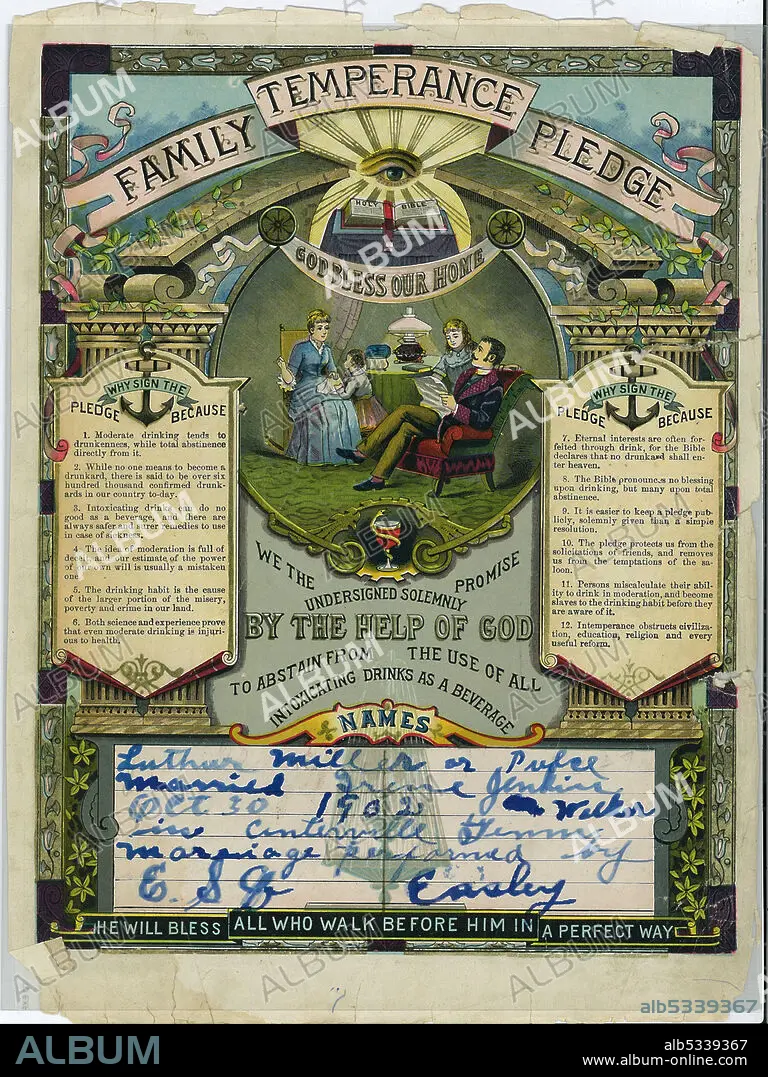 FAMILY TEMPERANCE PLEDGE
HOLY BIBLE
GOD BLESS OUR HOME
WHY SIGN THE
PLEDGE BECAUSE
1. Moderate drinking tends to
drunkenness, while total abstinence
directly from it.
2. While no one means to become a
drunkard, there is said to be over six
hundred thousand confirmed drunk-
ards in our country to-day.
3. Intoxicating drink can do no
good as a beverage, and there are
always safer and surer remedies to use
in case of sickness.
4. The idea of moderation is full of
deceit and our estimate of the power
of our own will is usually a mistaken
one.
5. The drinking habit is the cause
of the larger portion of the misery,
poverty and crime in our land.
6. Both science and experience prove
that even moderate drinking is injuri-
ous to health.
WHY SIGN THE
PLEDGE BECAUSE
7. Eternal interests are often for-
feited through drink, for the Bible
declares that no drunkard shall en-
ter heaven.
8. The Bible pronounces no blessing
upon drinking, but many upon total
abstinence.
9. It is easier to keep a pledge pub-
licly, solemnly given than a simple
resolution.
10. The pledge protects us from the
solicitations of friends, and removes
us from the temptations of the sa-
loon.
11. Persons miscalculate their abil-
ity to drink in moderation, and become
slaves to the drinking habit before they
are aware of it.
12. Intemperance obstructs civiliza-
tion, education, religion and every
useful reform.
WE THE UNDERSIGNED SOLEMNLY PROMISE
BY THE HELP OF GOD
TO ABSTAIN FROM THE USE OF ALL
INTOXICATING DRINKS AS A BEVERAGE
NAMES
Luther Miller or
Married Irene Jenkins
Oct 30 1902 Welker
in Centerville Tenn
Marriage performed by
E. S. Easley
HE WILL BLESS ALL WHO WALK BEFORE HIM IN A PERFECT WAY
ALBUM
alb5339367
ALBUM
alb5339367
www.album-online.com